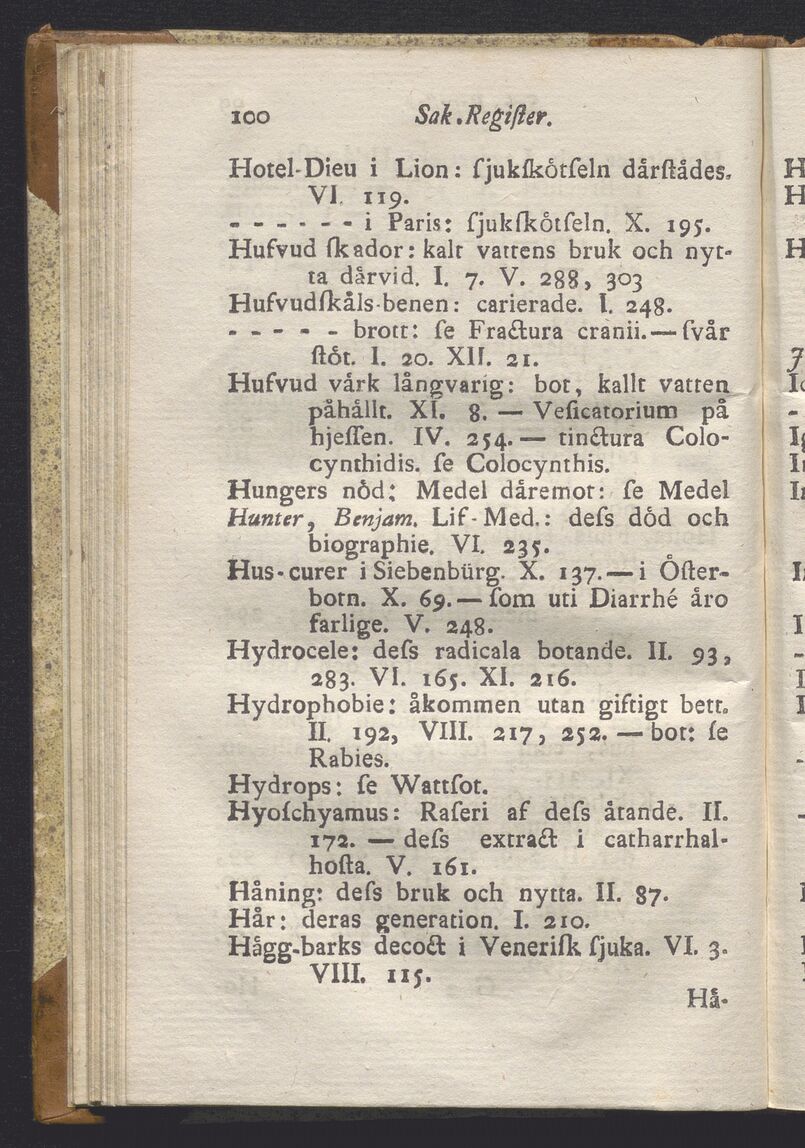 100 Sak-Regiſter.
Hotel-Dieu i Lion: ſjukſkötſeln dårſtådes.
VI. 119.
- - - - - - i Paris: ſjukſkötſeln. X. 195.
Hufvud ſkador: kalt vattens bruk och nyt-
ta dårvid. I. 7. V. 288, 303
Hufvudſkåls-benen: carierade. I. 248.
- - - - - brott: ſe Fractura cranii. — ſvår
ſtöt. I. 20. XII. 21.
Hufvud vårk långvarig: bot, kallt vatten
påhållt. XI. 8. — Veſicatorium på
hjeſſen. IV. 254. — tinctura Colo-
cynthidis. ſe Colocynthis.
Hungers nöd: Medel dåremot: ſe Medel
Hunter, Benjam. Lif-Med.: deſs död och
biographie. VI. 235.
Hus-curer i Siebenbürg. X. 137. — i Öſter-
botn. X. 69. — ſom uti Diarrhé åro
farlige. V. 248.
Hydrocele: deſs radicala botande. II. 93,
283. VI. 165. XI. 216.
Hydrophobie: åkommen utan giftigt bett.
II. 192, VIII. 217, 252. — bot: ſe
Rabies.
Hydrops: ſe Wattſot.
Hyoſchyamus: Raſeri af deſs åtande. II.
172. — deſs extract i catharrhal-
hoſta. V. 161.
Håning: deſs bruk och nytta. II. 87.
Hår: deras generation. I. 210.
Hågg-barks decoct i Veneriſk ſjuka. VI. 3.
VIII. 115.
Hå-